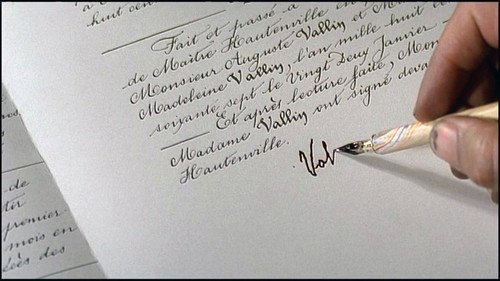 huit cen
Fait et passé à
de Maître Hautenville en
Monsieur Auguste Vallin et M
Madeleine Vallin, l'an mille huit c
soixante sept le Vingt Deux Janvier
Et après lecture faite, Mon
Madame Vallin ont signé deva
Hautenville.
Val
de
premier
mois en